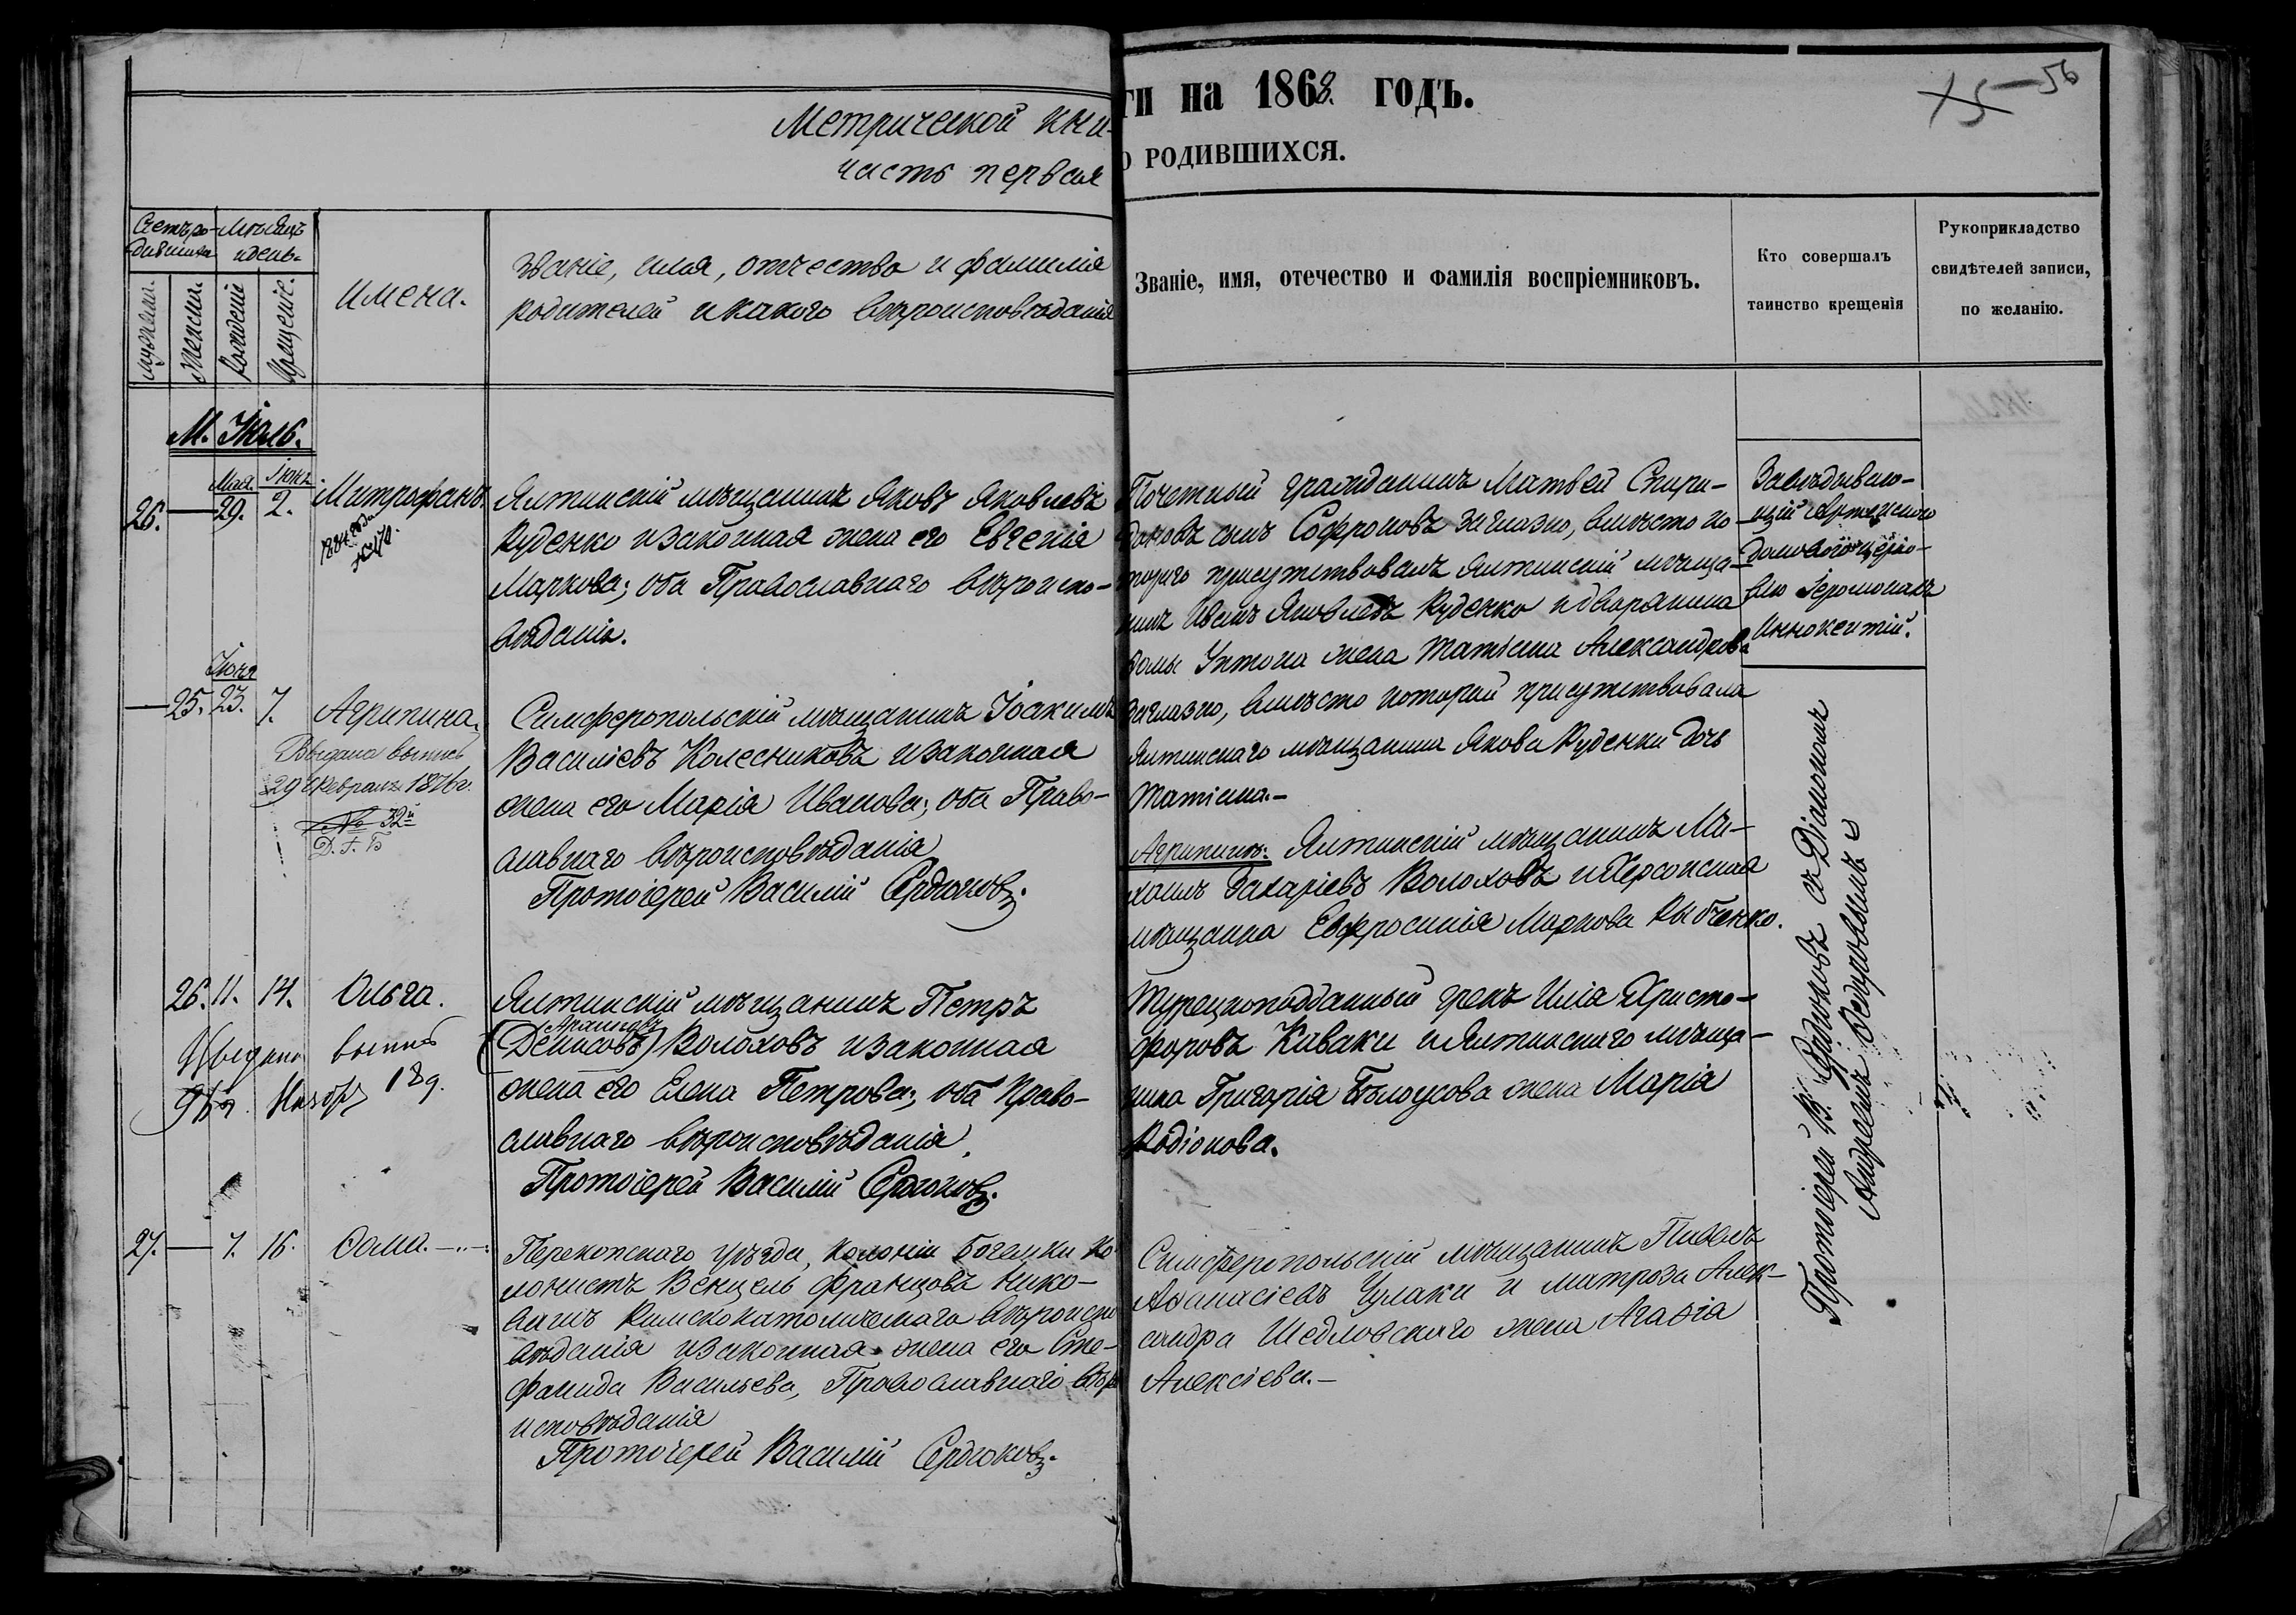 Метрической кни-
ги на 1868. годъ.
часть первая
о родившихся.
56
Счетъ ро-
дившихся
Мѣсяцъ
и день.
мужеска.
женска.
рожденіе
крещеніе.
Имена.
Званіе, имя, отчество и фамилія
родителей и какого вѣроисповѣданія
Званіе, имя, отечество и фамилія воспріемниковъ.
Кто совершалъ
таинство крещенія
Рукоприкладство
свидѣтелей записи,
по желанію.
М. Іюль.
Мая. Іюня
26. — 29. 2. Митрофанъ.
Ялтинскій мѣщанинъ Яковъ Яковлевъ
Руденко и законная жена его Евгенія
Маркова; оба Православнаго вѣроиспо-
вѣданія.
Почетный гражданинъ Матвей Спири-
доновъ сынъ Софроновъ заглазно, вмѣсто ко
тораго присутствовалъ Ялтинскій мѣща-
нинъ Иванъ Яковлевъ Руденко и дворянина
Томы Унтона жена Татіана Александрова
заглазно, вмѣсто которой присутствовала
Ялтинскаго мѣщанина Якова Руденки дочь
Татіана.—
Завѣдываю-
щій Артекскою
домовою церко-
вію Іеромонахъ
Иннокентій.
Іюня
— 25. 23. 7. Агрипина.
Выдана выпись
29 Февраля 1876 г.
№ 32й
Д. Г. Б
Симферопольскій мѣщанинъ Іоакимъ
Василіевъ Колесниковъ и законная
жена его Марія Иванова; оба Право-
славнаго вѣроисповѣданія
Протоіерей Василій Сердюковъ.
Агрипины: Ялтинскій мѣщанинъ Ми-
хаилъ Захаріевъ Волоховъ и Херсонская
мѣщанка Евфросинія Маркова Рыбченко.
26. 11. 14. Ольга.
Выдана выпись
Ялтинскій мѣщанинъ Петръ
Архиповъ
(Денисовъ) Волоховъ и законная
жена его Елена Петрова; оба Право-
славнаго вѣроисповѣданія,
Протоіерей Василій Сердюковъ.
Турецкоподданный грекъ Илія Христо-
форовъ Каваки и Ялтинскаго мѣща-
нина Григорія Бѣлоусова жена Марія
Родіонова.
27. — 7. 16. Ѳома.
Перекопскаго уѣзда, колоніи Богемки ко
лонистъ Венцель Францовъ Нико-
Римскокатолическаго вѣроиспо
вѣданія и законная жена его Сте-
фанида Васильева, Православнаго вѣро
исповѣданія
Протоіерей Василій Сердюковъ.
Симферопольскій мѣщанинъ Павелъ
Аѳанасіевъ Чулаки и матроза Алек-
сандра Шедловскаго жена Агаѳія
Алексіева.—
Протоіерей В. Сердюковъ съ Діакономъ
Андреемъ